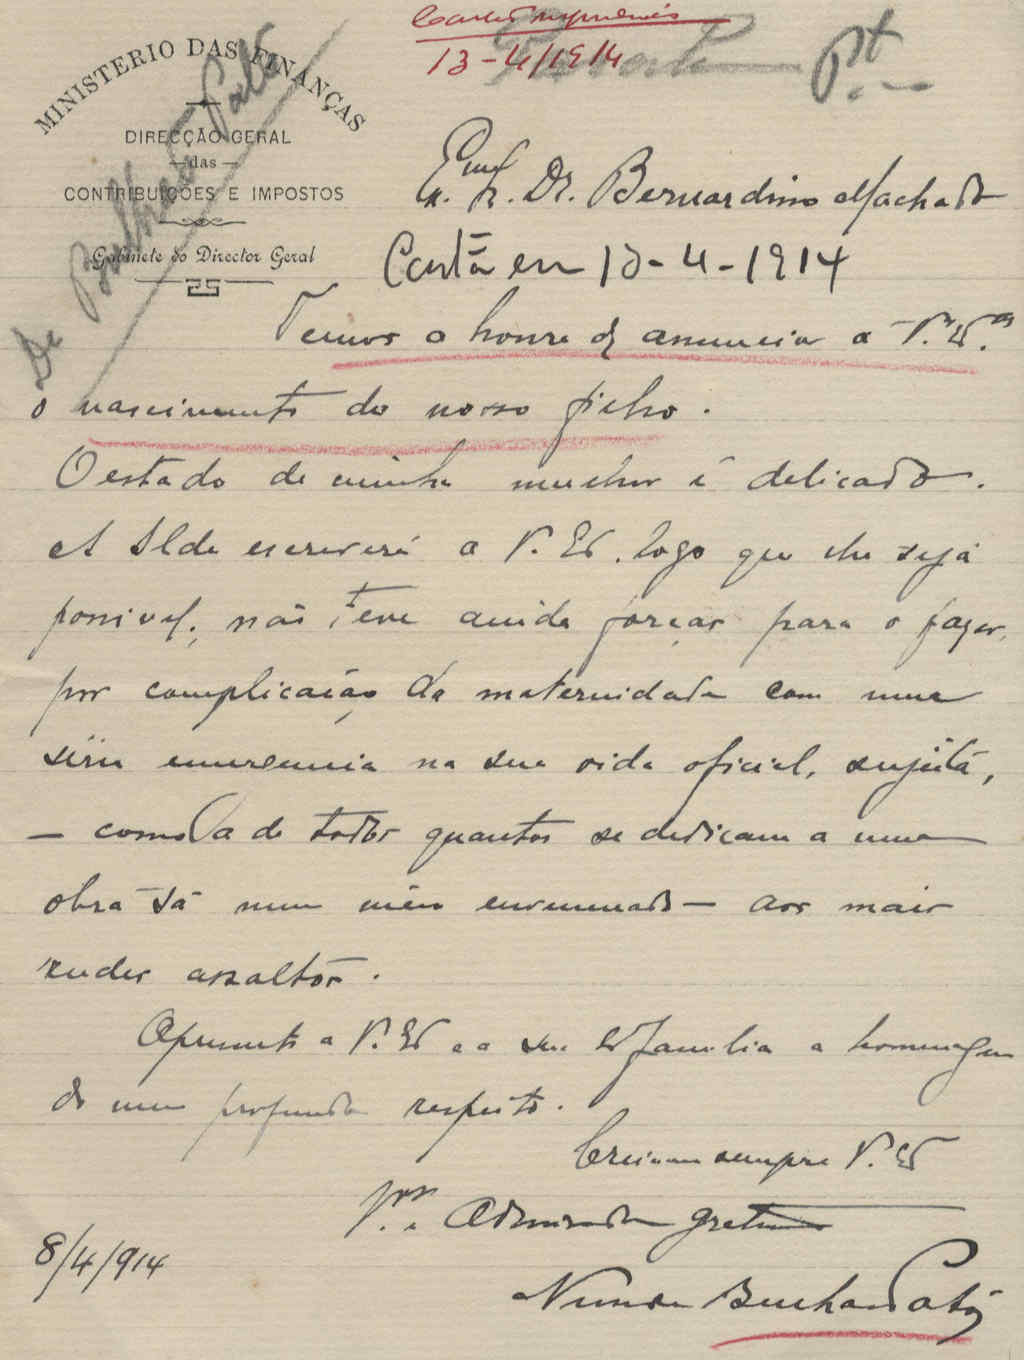 13-4/1914
Pt
MINISTERIO DAS FINANÇAS
DIRECÇÃO GERAL
das
CONTRIBUIÇÕES E IMPOSTOS
Gabinete do Director Geral
De Bulhão Pato
Dr. Bernardino Machado
Cartão em 13-4-1914
Temos a honra de anunciar a V. Ex.as
o nascimento do nosso filho.
O estado de minha mulher é delicado.
A Ilda escreverá a V. Ex. logo que lhe seja
possivel; não teve ainda forças para o fazer,
por complicação da maternidade com uma
séria na sua vida oficial, sujeita,
— como a de todos quantos se dedicam a uma
obra sã num meio envenenado — aos mais
rudes assaltos.
Apresento a V. Ex e a sua Ex familia a homenagem
do meu profundo respeito.
Creiam-me sempre V. Ex
Admirador grato
8/4/914
Bulhão Pato